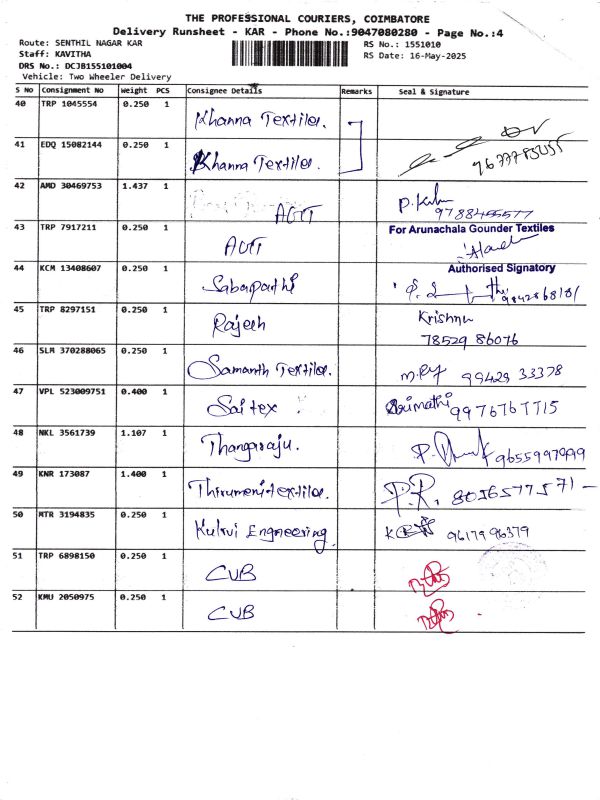 THE PROFESSIONAL COURIERS, COIMBATORE
Delivery Runsheet - KAR - Phone No.:9047080280 - Page No.:4
Route: SENTHIL NAGAR KAR
RS No.: 1551010
Staff: KAVITHA
RS Date: 16-May-2025
DRS No.: DCJB155101004
Vehicle: Two Wheeler Delivery
S No Consignment No Weight PCS Consignee Details Remarks Seal & Signature
40 TRP 1045554 0.250 1 Khanna Textiles.
41 EDQ 15082144 0.250 1 Khanna Textiles.
42 AMD 30469753 1.437 1 AGTT 9788455577
43 TRP 7917211 0.250 1 AGTT For Arunachala Gounder Textiles
Authorised Signatory
44 KCM 13408607 0.250 1 Sabapathi
45 TRP 8297151 0.250 1 Rajesh Krishna
78529 86076
46 SLM 370288065 0.250 1 Samanth Textiles. 99429 33378
47 VPL 523009751 0.400 1 Sai tex 9976767715
48 NKL 3561739 1.107 1 Thangaraju.
49 KNR 173087 1.400 1 Thirumeni textiles. P.R. 8056577571-
50 MTR 3194835 0.250 1 Kulrvi Engneering. 9617996379
51 TRP 6898150 0.250 1 CUB
52 KMU 2050975 0.250 1 CUB